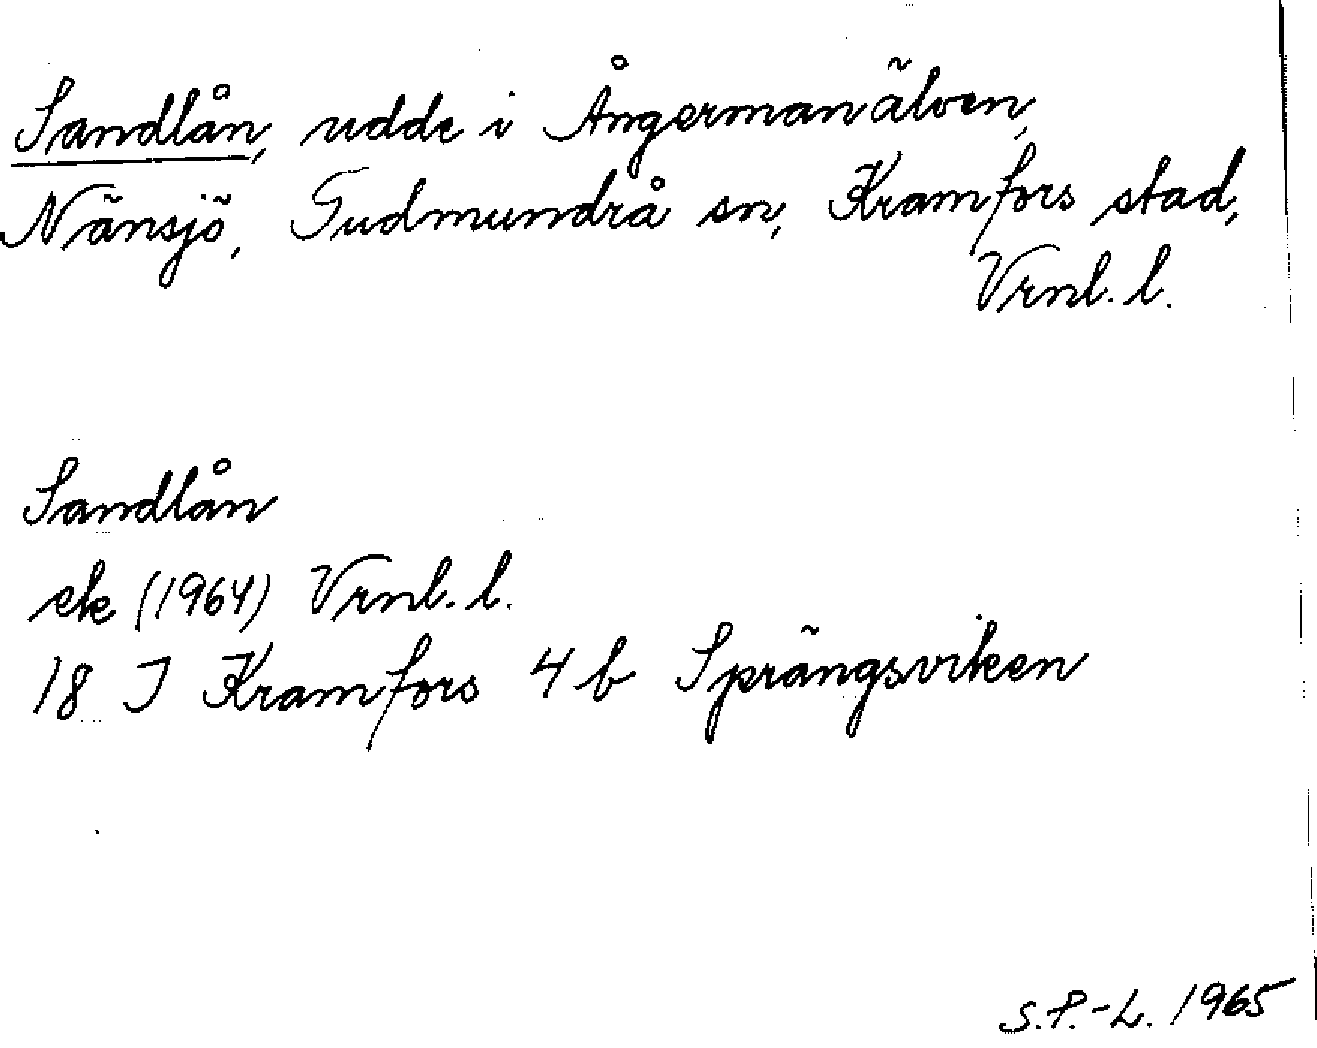 Sandlån, udde i Ångermanälven,
Nänsjö, Gudmundrå sn, Kramfors stad,
Vrnl. l.
Sandlån
ek (1964) Vrnl. l.
18 J Kramfors 4 b Sprängsviken
S.P.-L. 1965